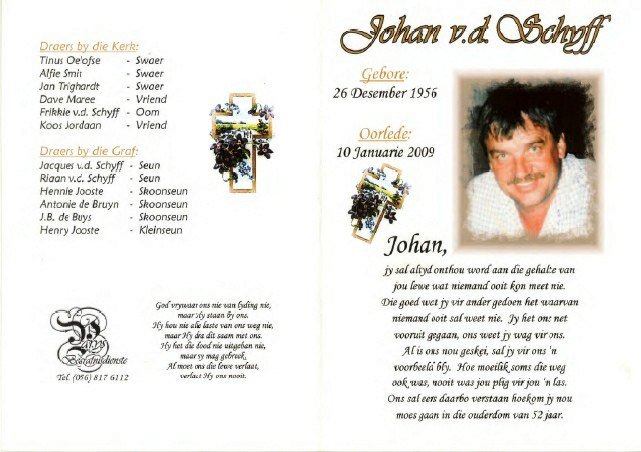 Draers by die Kerk:
Tinus Oelofse - Swaer
Alfie Smit - Swaer
Jan Trighardt - Swaer
Dave Maree - Vriend
Frikkie v.d. Schyff - Oom
Koos Jordaan - Vriend
Draers by die Graf:
Jacques v.d. Schyff - Seun
Riaan v.d. Schyff - Seun
Hennie Jooste - Skoonseun
Antonie de Bruyn - Skoonseun
J.B. de Buys - Skoonseun
Henry Jooste - Kleinseun
God vrywaar ons nie van lyding nie,
maar Hy staan by ons.
Hy hou nie alle laste van ons weg nie,
maar Hy dra dit saam met ons.
Hy het die dood nie uitgeban nie,
maar sy mag gebreek.
Al moet ons die lewe verlaat,
verlaat Hy ons nooit.
Parys
Begrafnisdienste
Tel: (056) 817 6112
Johan v.d. Schyff
Gebore:
26 Desember 1956
Oorlede:
10 Januarie 2009
Johan,
jy sal altyd onthou word aan die gehalte van
jou lewe wat niemand ooit kon meet nie.
Die goed wat jy vir ander gedoen het waarvan
niemand ooit sal weet nie. Jy het ons net
vooruit gegaan, ons weet jy wag vir ons.
Al is ons nou geskei, sal jy vir ons 'n
voorbeeld bly. Hoe moeilik soms die weg
ook was, nooit was jou plig vir jou 'n las.
Ons sal eers daarbo verstaan hoekom jy nou
moes gaan in die ouderdom van 52 jaar.